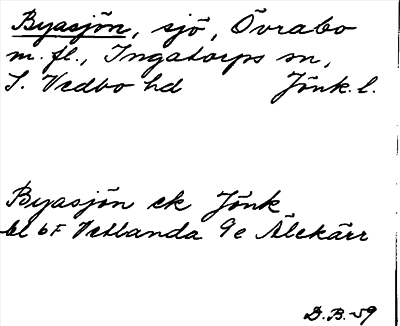 Byasjön, sjö, Övrabo
m. fl., Ingatorps sn,
S. Vedbo hd Jönk. l.
Byasjön ek Jönk
bl 6F Vetlanda 9e Älekärr
D.B.-59